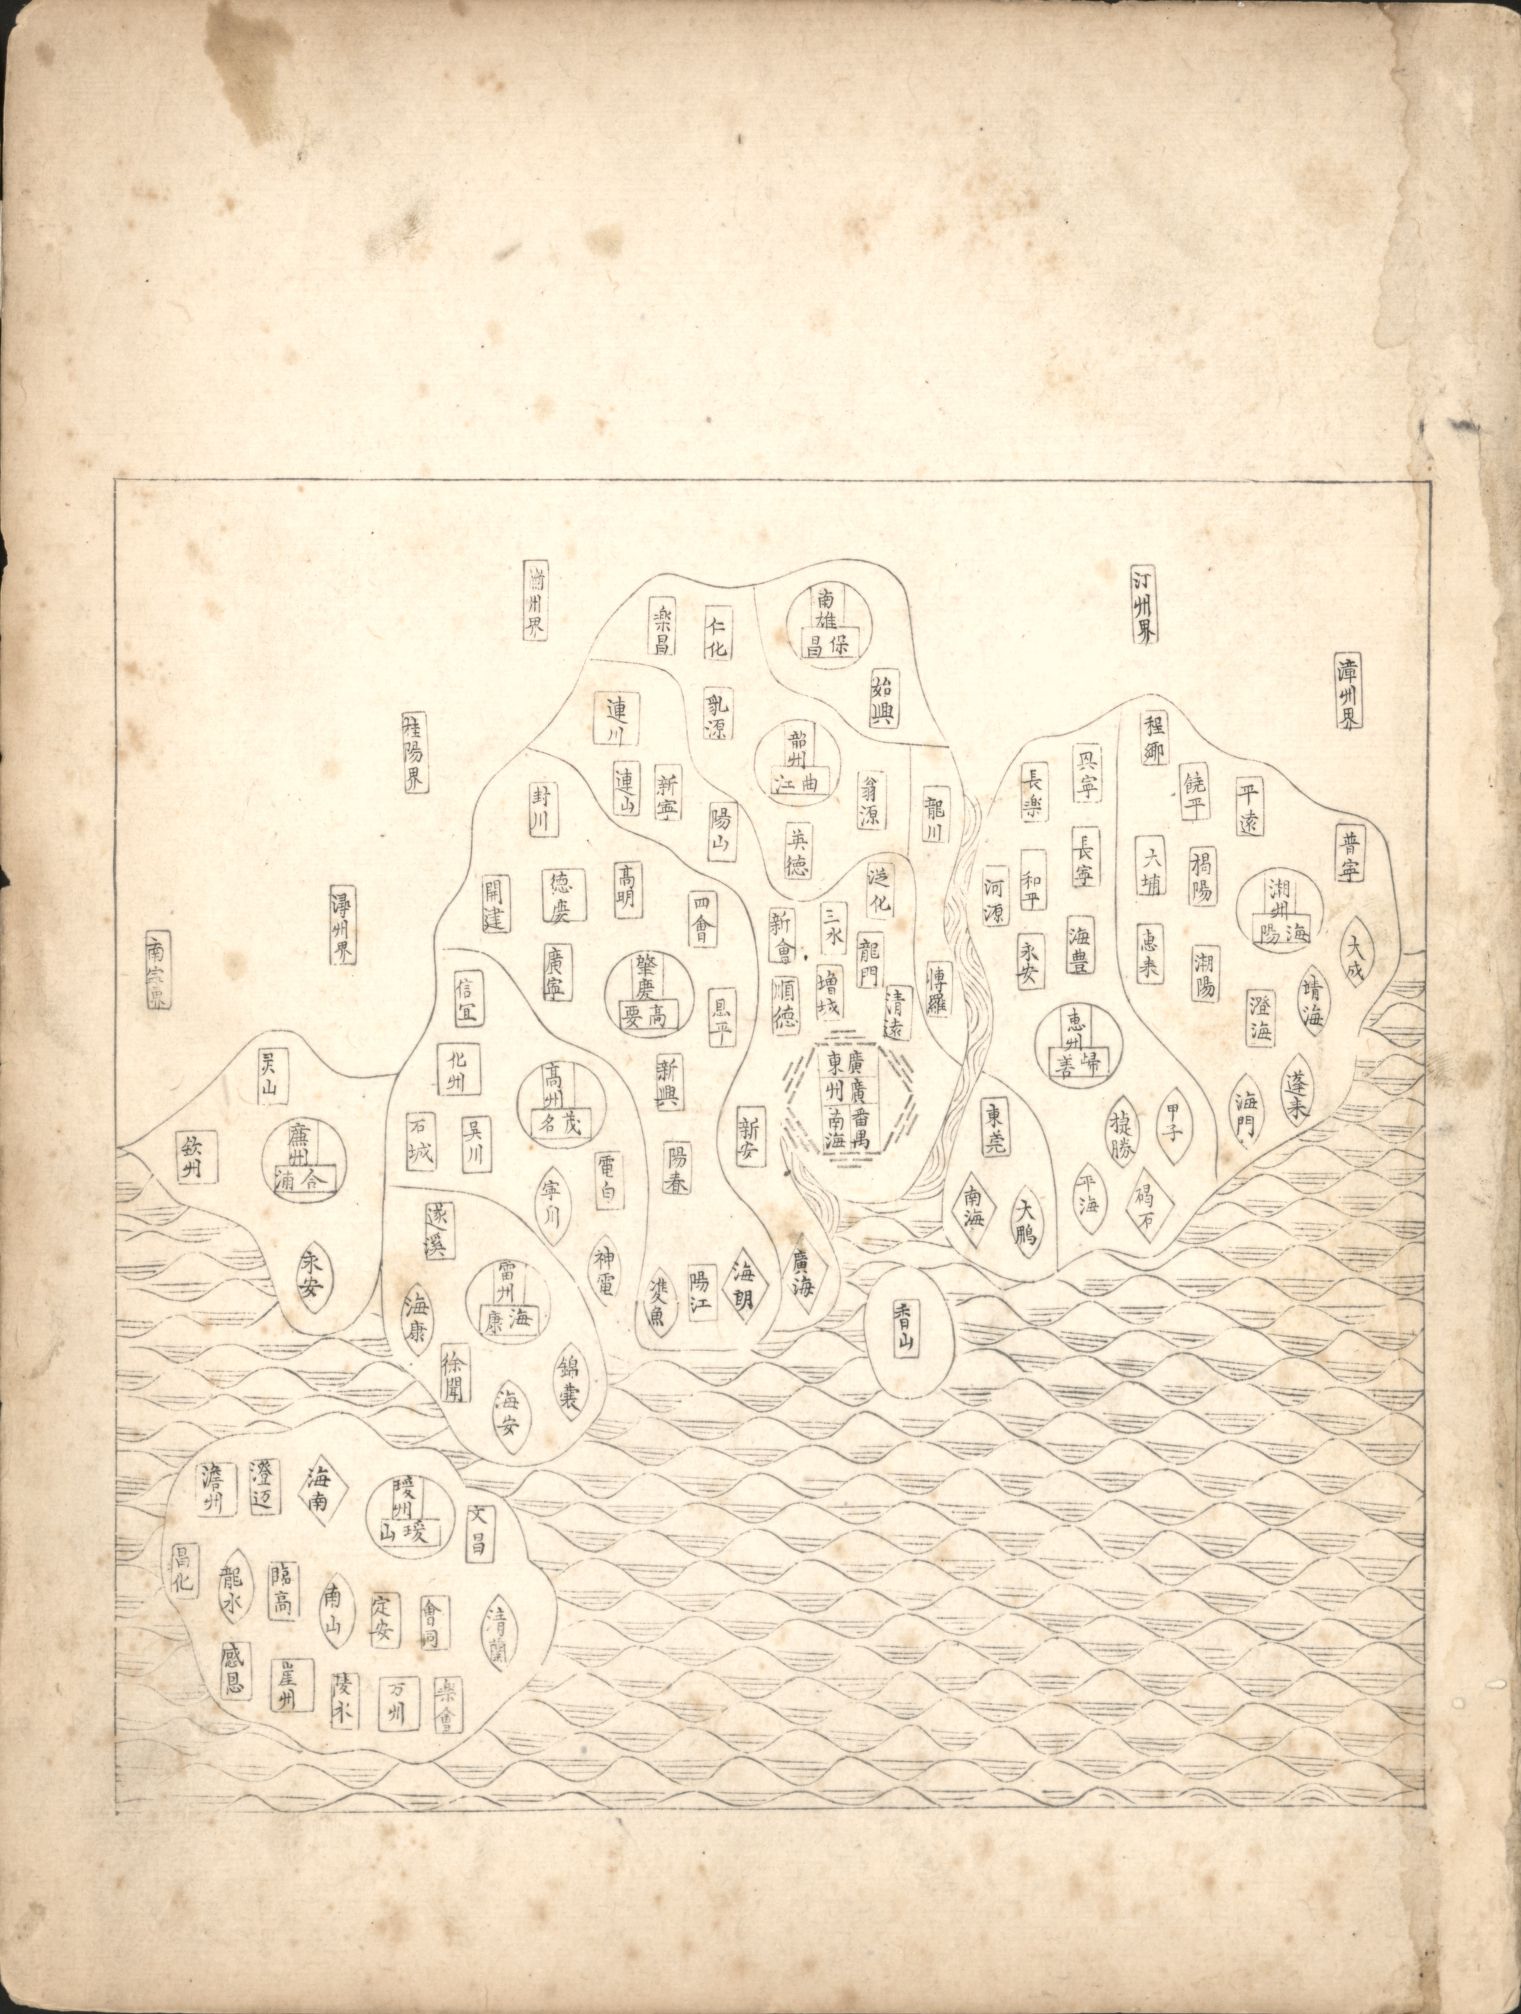 汀州界
漳州界
桂陽界
潯州界
南雄
保昌
始興
仁化
楽昌
乳源
連川
韶州
曲江
翁源
龍川
英徳
陽山
新寧
連山
封川
従化
三水
新會
龍門
増城
順徳
清遠
博羅
廣東
廣州
番禺
南海
新安
四會
高明
徳慶
開建
廣寧
肇慶
高要
恩平
新興
陽春
陽江
海朗
廣海
雙魚
信宜
化州
高州
茂名
石城
吳川
電白
寧川
神電
遂溪
雷州
海康
海康
徐聞
海安
錦囊
灵山
欽州
廉州
合浦
永安
程鄉
饒平
平遠
普寧
大埔
揭陽
潮州
海陽
大成
惠来
潮陽
澄海
靖海
蓬来
海門
興寧
長楽
長寧
和平
河源
海豊
永安
惠州
歸善
甲子
捷勝
碣石
平海
東莞
大鵬
南海
香山
瓊州
瓊山
文昌
海南
澄迈
儋州
昌化
龍水
臨高
南山
定安
會同
清蘭
感恩
崖州
陵水
万州
楽會